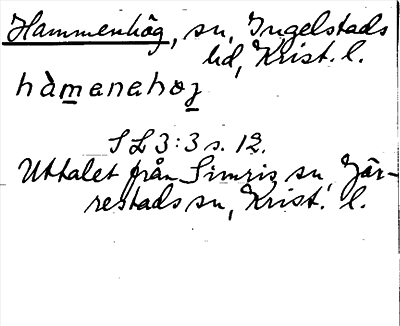 Hammenhög, sn, Ingelstads
hd, Krist. l.
hàmenehøʒ
SL 3:3 s. 12.
Uttalet från Simris sn, Jär-
restads sn, Krist. l.